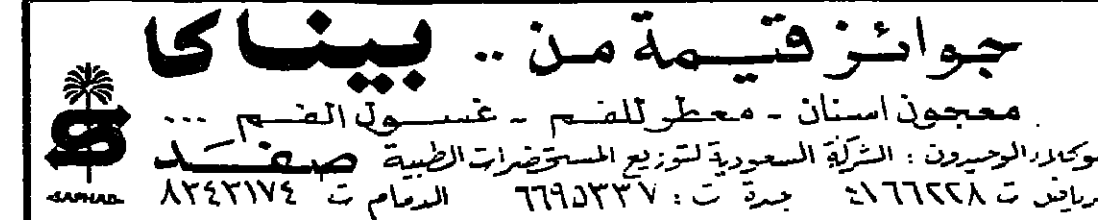 جوائز قيمة من .. بيناكا
معجون اسنان - معطر للفم - غسول الفم ...
الوحيدون : الشركة السعودية لتوزيع المستحضرات الطبية صفد
ت ٤١٦٦٢٢٨ جدة ت : ٦٦٩٥٣٣٧ الدمام ت ٨٣٤٣١٧٤
SAPHAD